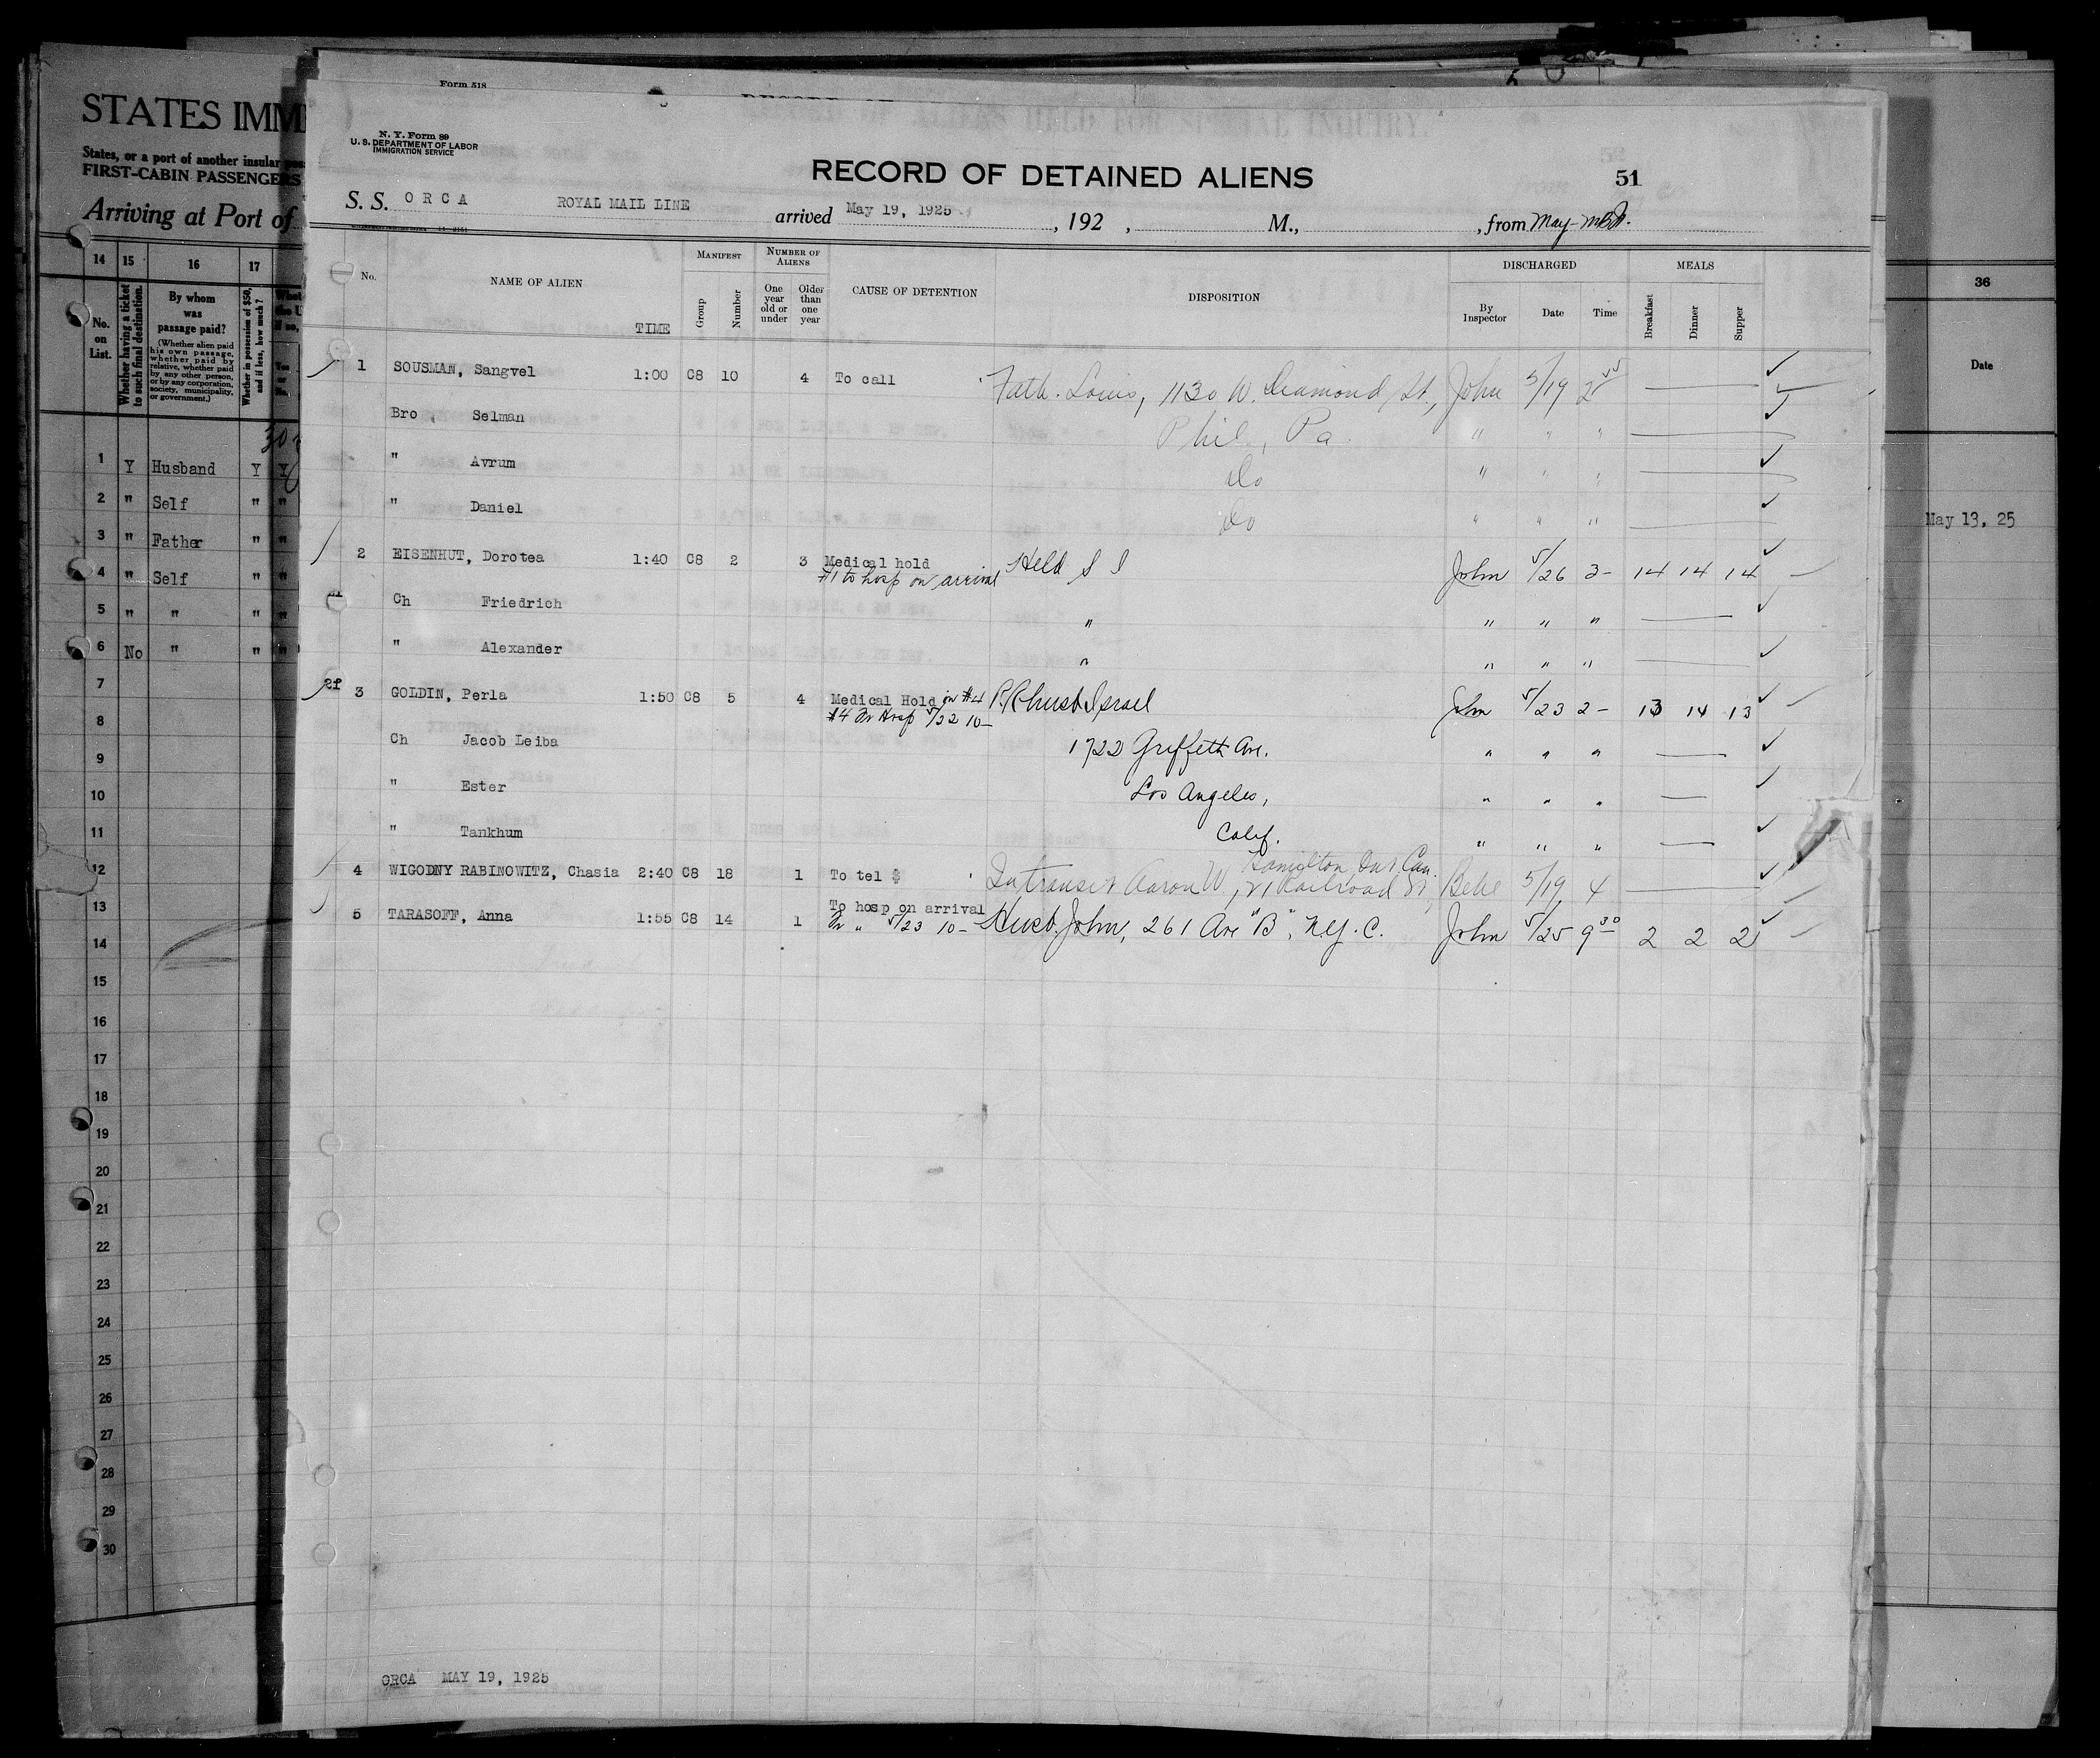 Form 518
N. Y. Form 89
U. S. DEPARTMENT OF LABOR
IMMIGRATION SERVICE
RECORD OF DETAINED ALIENS
51
S. S. ORCA ROYAL MAIL LINE arrived May 19, 1925, 192 , M., , from May-
No. NAME OF ALIEN TIME MANIFEST Group Number NUMBER OF ALIENS One year old or under Older than one year CAUSE OF DETENTION DISPOSITION DISCHARGED By Inspector Date Time MEALS Breakfast Dinner Supper
1 SOUSMAN, Sangvel 1:00 C8 10 4 To call Fath. Louis, 1130 W. Diamond St., John 5/19 2 55
Bro Selman Phil., Pa. " " "
" Avrum do " " "
" Daniel do " " "
2 EISENHUT, Dorotea 1:40 C8 2 3 Medical hold Held S I John 5/26 3- 14 14 14
#1 to hosp on arrival
Ch Friedrich " " " "
" Alexander " " " "
3 GOLDIN, Perla 1:50 C8 5 4 Medical Hold on #4 RR husb Israel John 5/23 2- 13 14 13
#4 Fr Hosp 5/22 10-
Ch Jacob Leiba 1722 Griffeth Ave. " " "
" Ester Los Angeles, " " "
" Tankhum Calif. " " "
Hamilton Ont. Can.
4 WIGODNY RABINOWITZ, Chasia 2:40 C8 18 1 To tel $ Intransit Aaron W., 21 Railroad St, 5/19 4
To hosp on arrival
5 TARASOFF, Anna 1:55 C8 14 1 Fr " 5/23 10- Husb. John, 261 Ave "B", N.Y.C. John 5/25 9 30 2 2 2
ORCA MAY 19, 1925
STATES IMM
States, or a port of another insular
FIRST-CABIN PASSENGERS
Arriving at Port of
14 15 16 17
No. on List.
Whether having a ticket to such final destination.
By whom was passage paid?
(Whether alien paid his own passage, whether paid by relative, whether paid by any other person, or by any corporation, society, municipality, or government.)
Whether in possession of $50, and if less, how much?
1 Y Husband Y Y
2 " Self " "
3 " Father " "
4 " Self " "
5 " " " "
6 No " " "
7
8
9
10
11
12
13
14
15
16
17
18
19
20
21
22
23
24
25
26
27
28
29
30
36
Date
May 13, 25